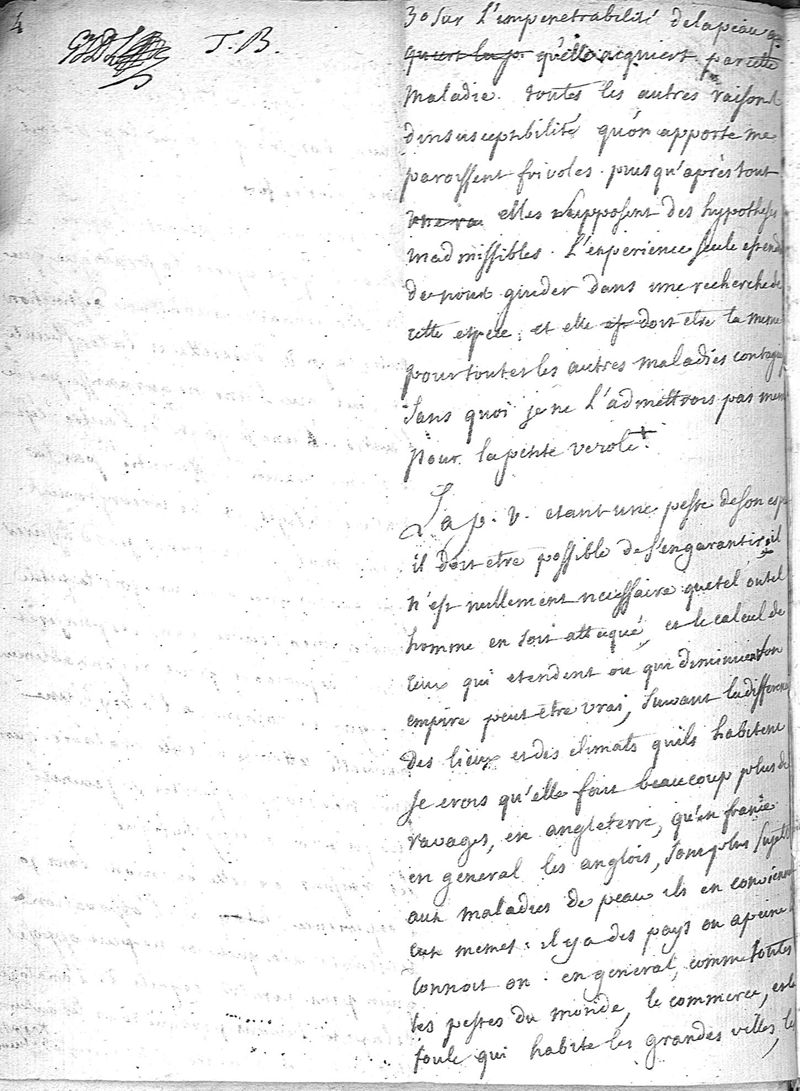 4
T. B.
3o sur L'impenetrabilité de la peau
qu'elle acquiert par cette
maladie. toutes les autres raisons
dinsusceptibilité qu'on apporte me
paroissent frivoles. puis qu'après tout
elles supposent des hypotheses
inadmissibles. L'experience seule est en
de nous guider dans une recherche de
cette espece. et elle doit etre la meme
pour toutes les autres maladies contag
sans quoi je ne L'admettrois pas meme
pour la petite verole.
La p. v. etant une peste de son esp
il doit etre possible de s'en garantir, il
n'est nullement necessaire que tel ou tel
homme en soit attaqué, et le calcul de
ceux qui etendent ou qui diminuent son
empire peut etre vrai, suivant la difference
des lieux et des climats qu'ils habitent
je crois qu'elle fait beaucoup plus de
ravages, en angleterre, qu'en france
en general les anglois, sont plus sujets
aux maladies de peau ils en conviennent
eux memes: il y a des pays ou a peine la
connoit on. en general, comme toutes
les pestes du monde, le commerce, et la
foule qui habite les grandes villes, le